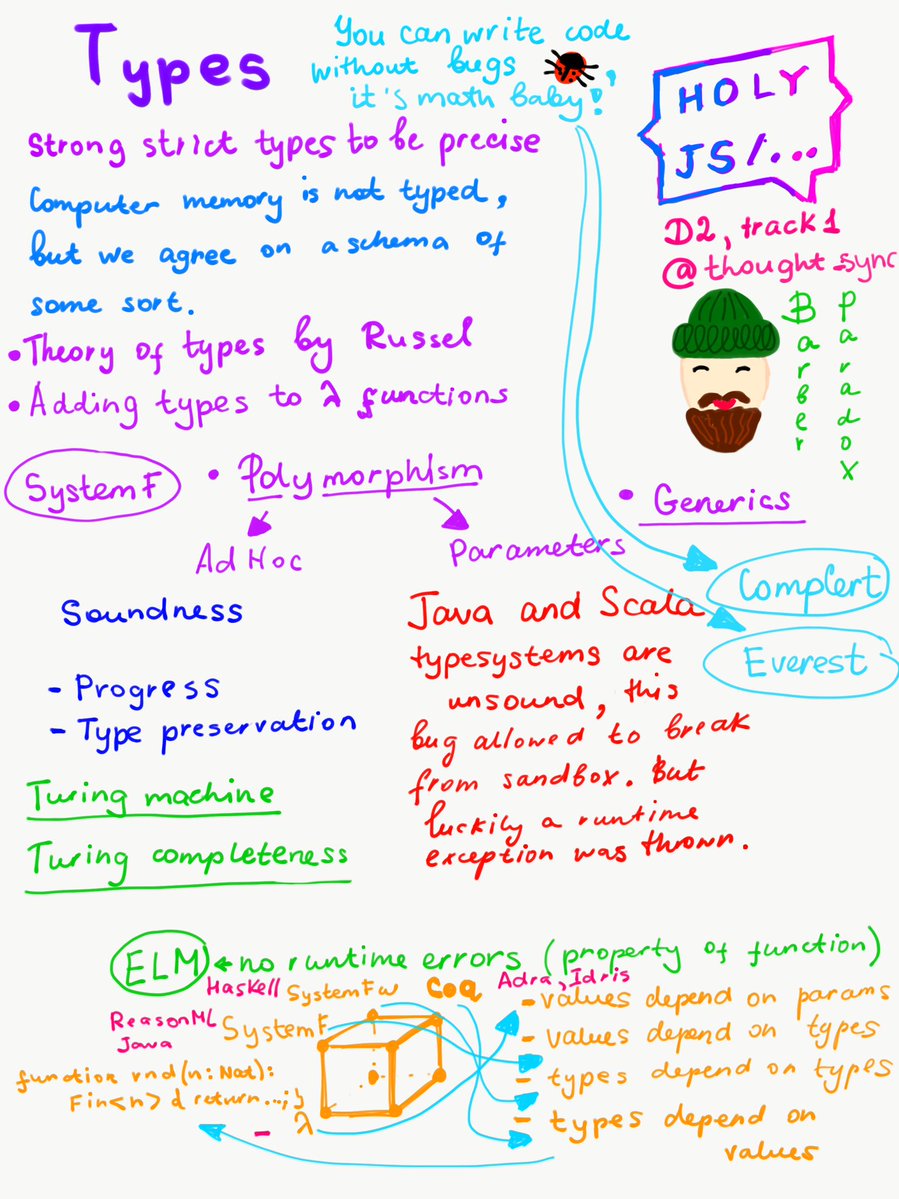 Types
You can write code
without bugs
it's math baby!
HOLY
JS/...
Strong strict types to be precise
Computer memory is not typed,
but we agree on a schema of
some sort.
D2, track 1
@thought_sync
Barber
Paradox
• Theory of types by Russel
• Adding types to λ functions
System F
• Polymorphism
AdHoc
Parameters
• Generics
Complert
Everest
Soundness
- Progress
- Type preservation
Turing machine
Turing completeness
Java and Scala
typesystems are
unsound, this
bug allowed to break
from sandbox. But
luckily a runtime
exception was thrown.
ELM ← no runtime errors (property of function)
Haskell
System Fw
coq
Adra, Idris
ReasonML
Java
System F
function rnd(n: Nat):
Fin<n> { return...; }
- λ
- values depend on params
- values depend on types
- types depend on types
- types depend on
values